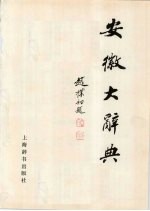 安徽大辞典
赵朴初题
上海辞书出版社